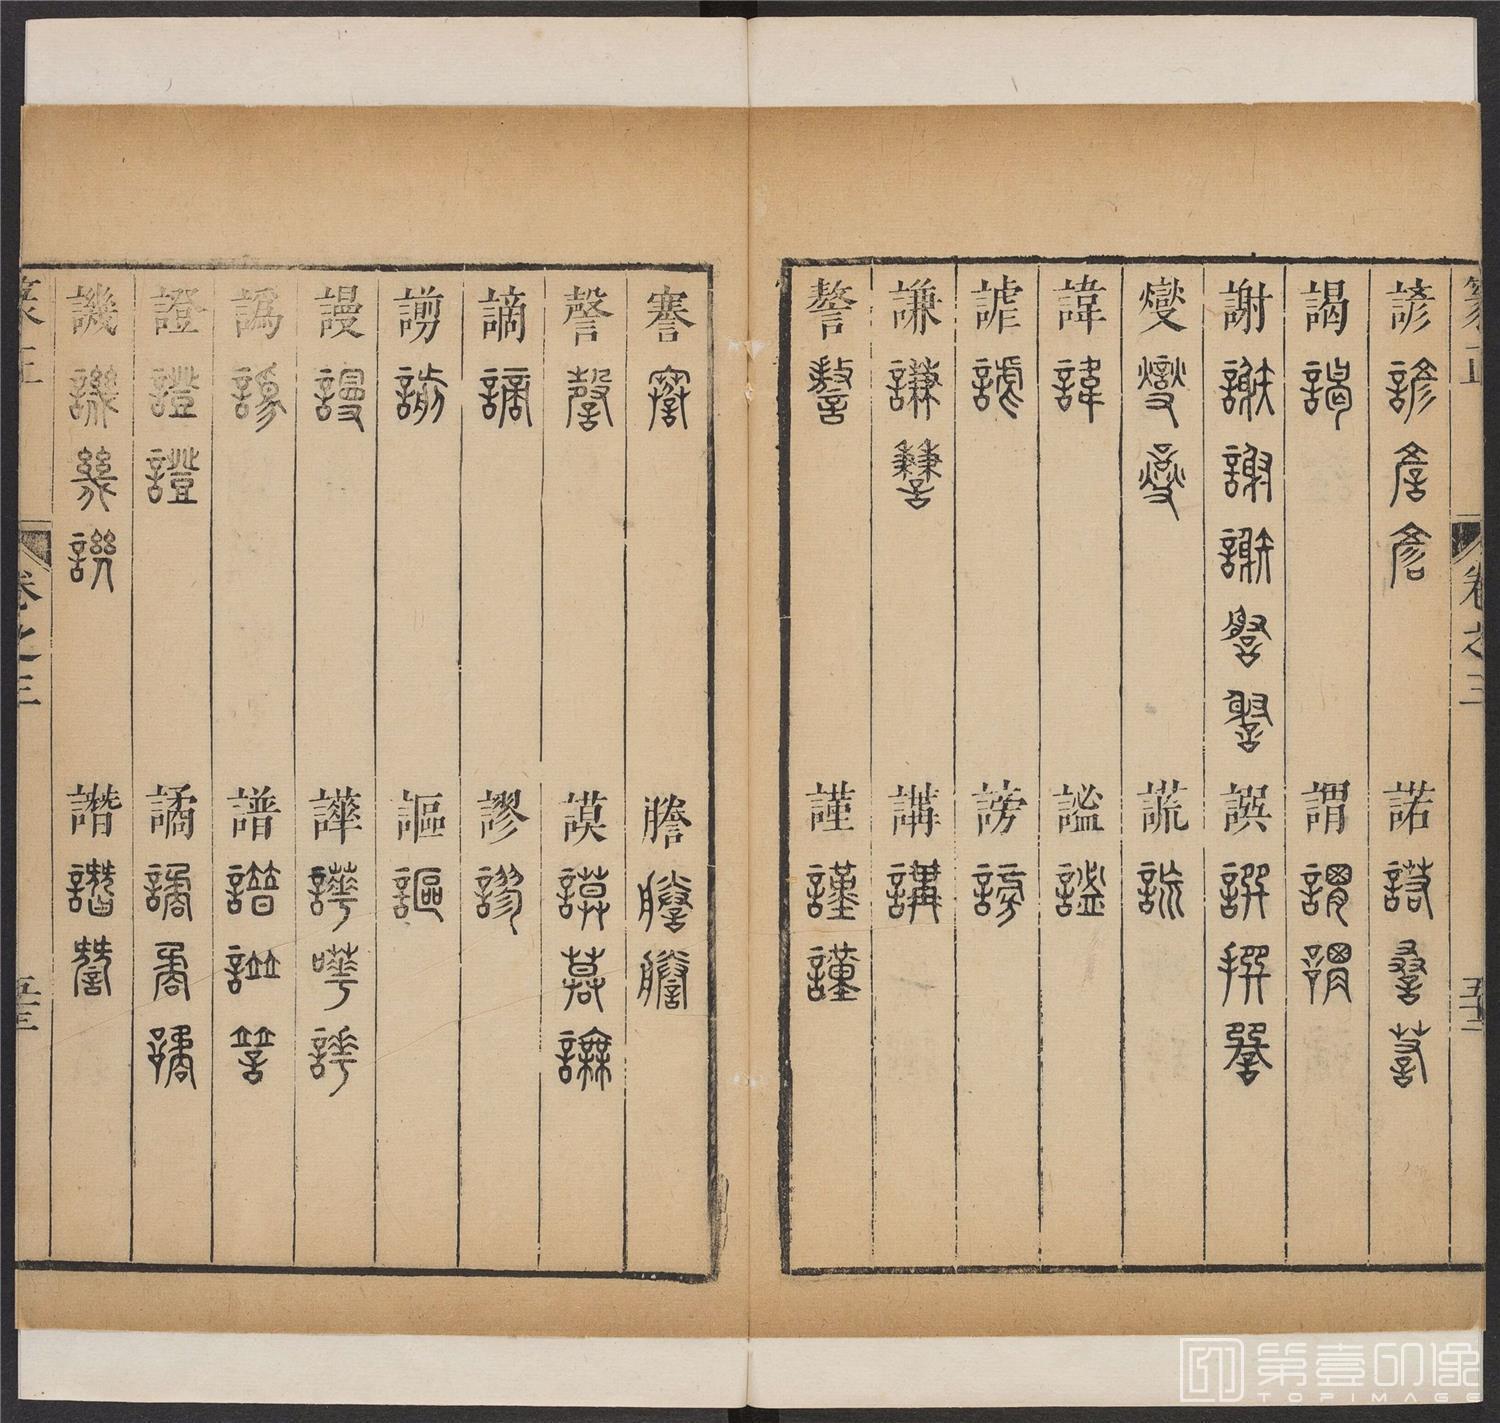 篆正 卷之三 五十二
諺諺諺諺 諾諾諾諾
謁謁 謂謂謂
謝謝謝謝謝謝 譔譔譔譔
燮燮燮 謊謊
諱諱 謐謐
謔謔 謗謗
謙謙謙 講講
謷謷 謹謹謹
謇謇 謄謄謄
謦謦 謨謨謨謨
謫謫 謬謬
謭謭 謳謳
謾謾 譁譁譁譁
譌譌 譜譜譜譜
證證證 譎譎譎譎
譏譏譏譏 譖譖譖
篆正 卷之三 五十三
第壹印像
TOPIMAGE